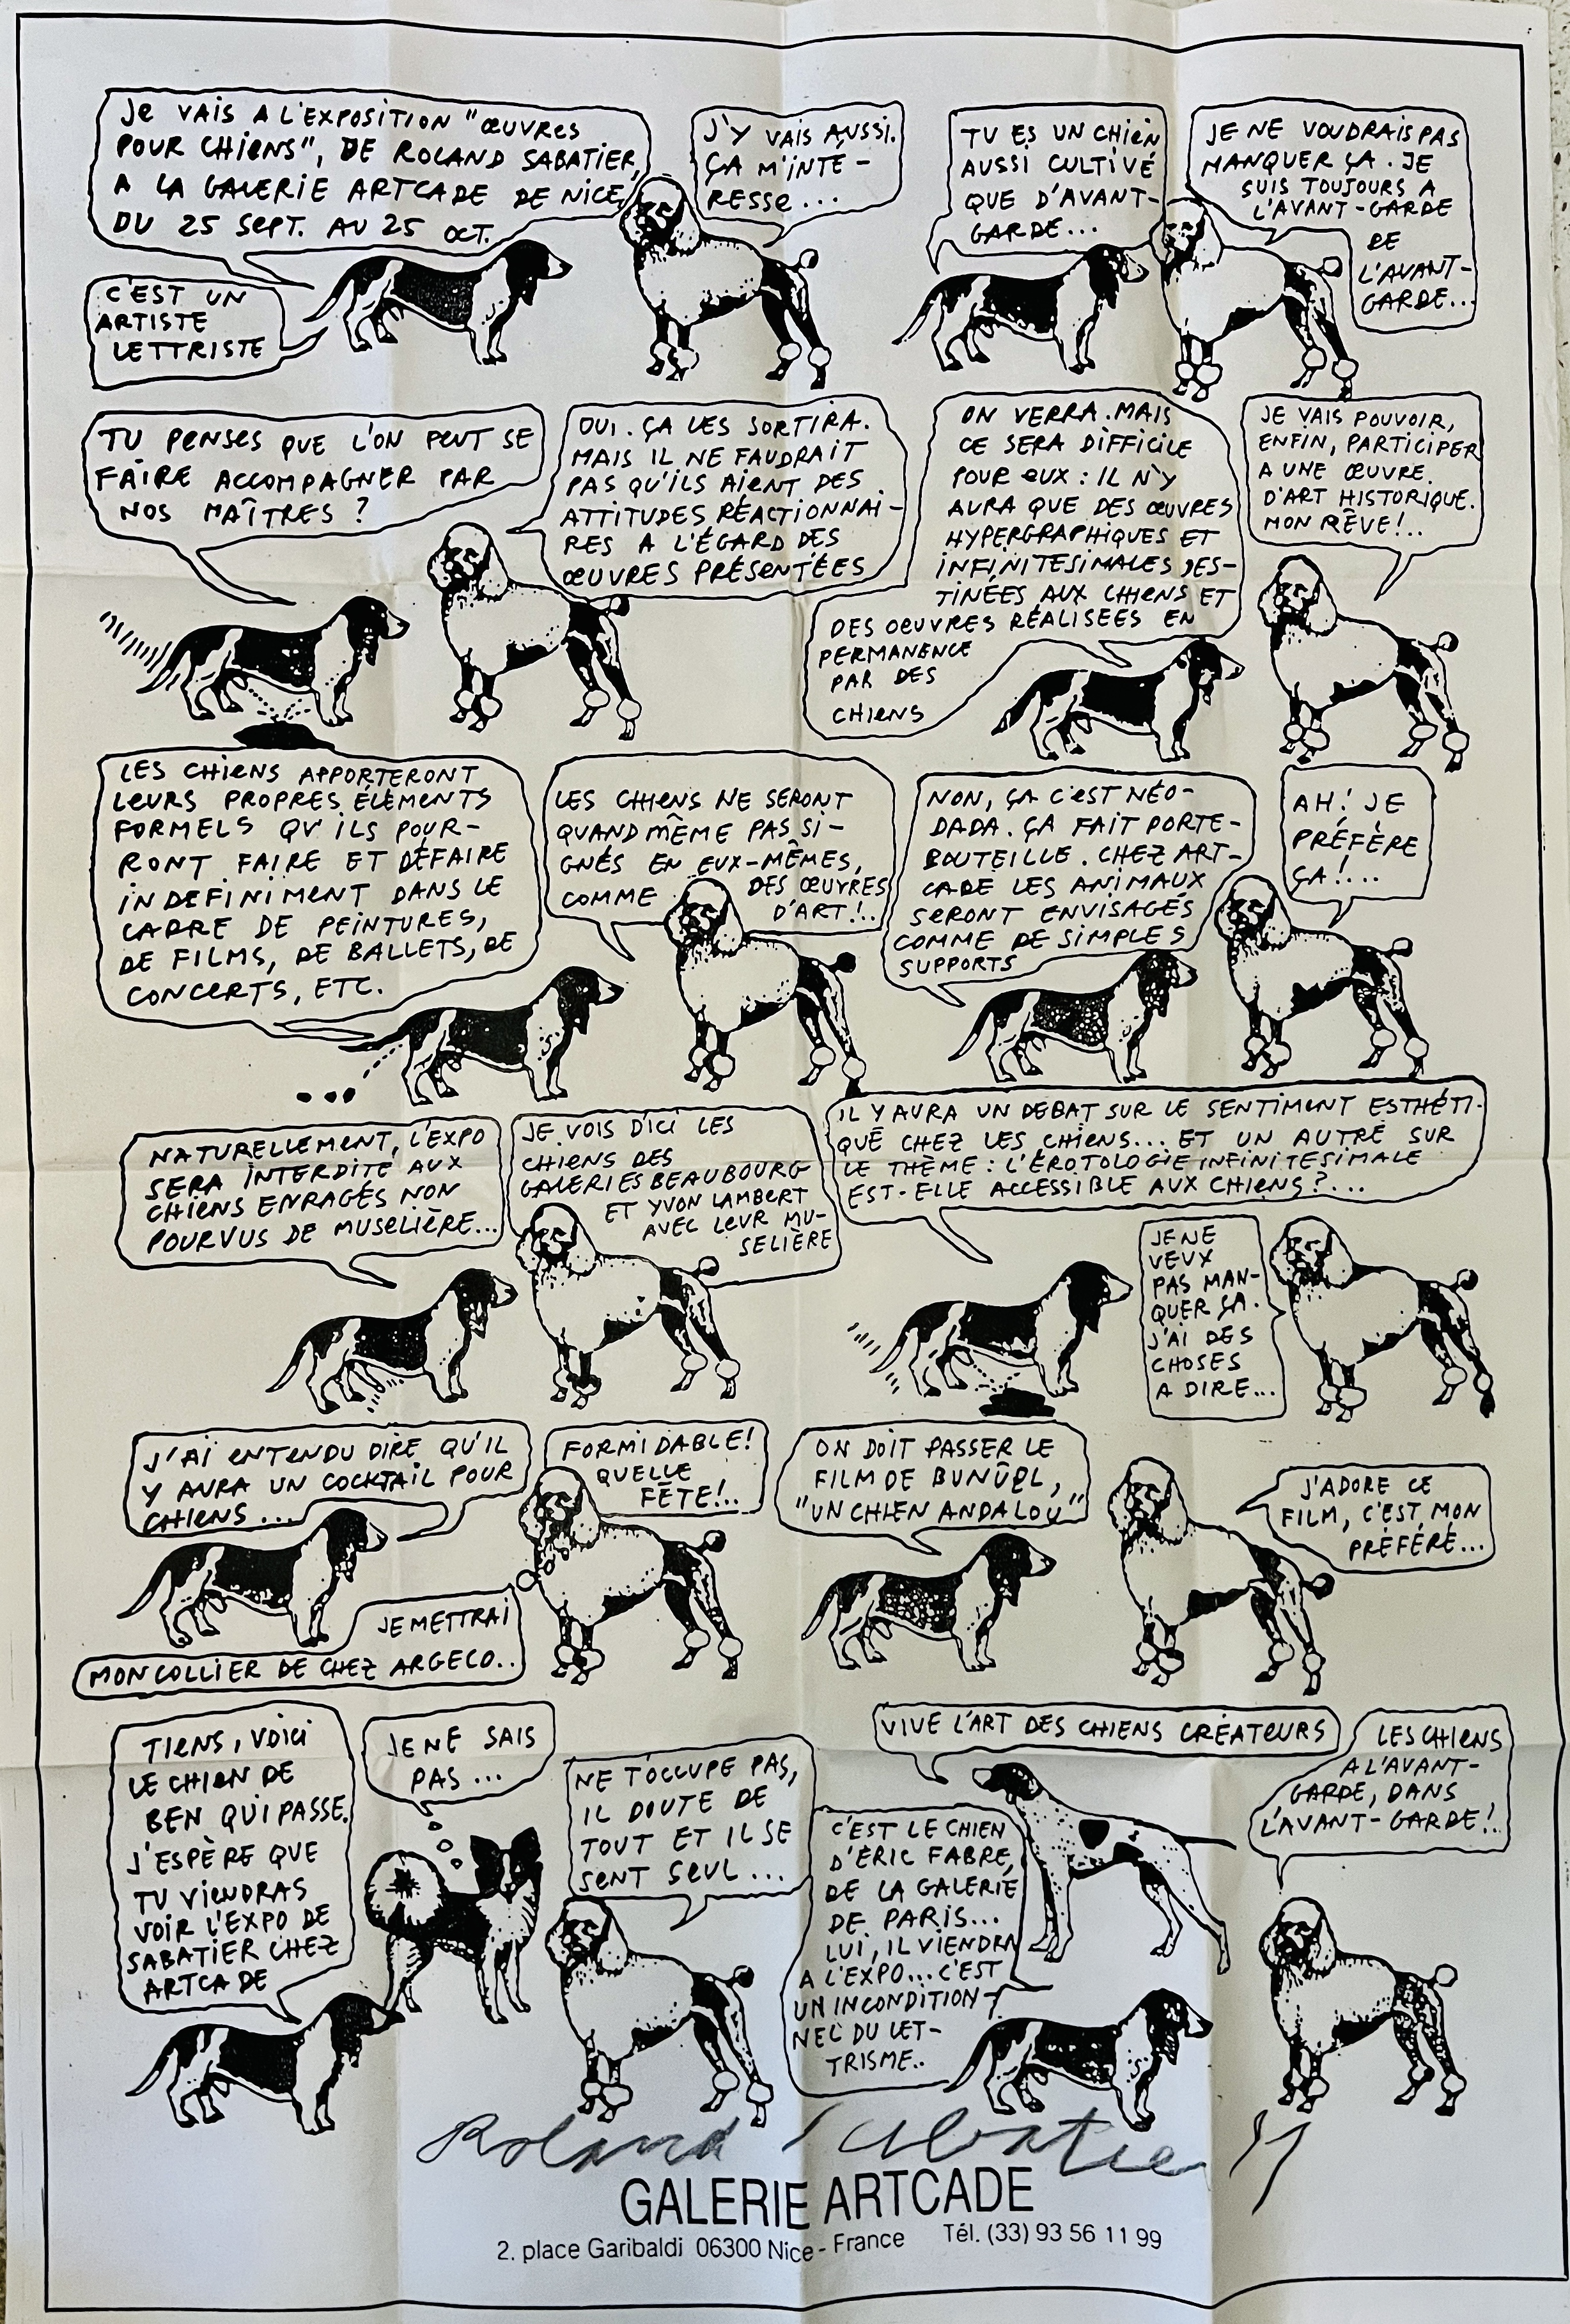 JE VAIS A L'EXPOSITION "ŒUVRES
POUR CHIENS", DE ROLAND SABATIER,
A LA GALERIE ARTCADE DE NICE,
DU 25 SEPT. AU 25 OCT.
C'EST UN
ARTISTE
LETTRISTE
J'Y VAIS AUSSI.
ÇA M'INTÉ-
RESSE...
TU ES UN CHIEN
AUSSI CULTIVÉ
QUE D'AVANT-
GARDE...
JE NE VOUDRAIS PAS
MANQUER ÇA. JE
SUIS TOUJOURS A
L'AVANT-GARDE
DE
L'AVANT-
GARDE...
TU PENSES QUE L'ON PEUT SE
FAIRE ACCOMPAGNER PAR
NOS MAÎTRES ?
OUI. ÇA LES SORTIRA.
MAIS IL NE FAUDRAIT
PAS QU'ILS AIENT DES
ATTITUDES RÉACTIONNAI-
RES A L'ÉGARD DES
ŒUVRES PRÉSENTÉES
ON VERRA. MAIS
CE SERA DIFFICILE
POUR EUX : IL N'Y
AURA QUE DES ŒUVRES
HYPERGRAPHIQUES ET
INFINITESIMALES DES-
TINÉES AUX CHIENS ET
DES OEUVRES RÉALISEES EN
PERMANENCE
PAR DES
CHIENS
JE VAIS POUVOIR,
ENFIN, PARTICIPER
A UNE ŒUVRE
D'ART HISTORIQUE.
MON RÊVE!..
LES CHIENS APPORTERONT
LEURS PROPRES ÉLÉMENTS
FORMELS QU'ILS POUR-
RONT FAIRE ET DÉFAIRE
INDEFINIMENT DANS LE
CADRE DE PEINTURES,
DE FILMS, DE BALLETS, DE
CONCERTS, ETC.
LES CHIENS NE SERONT
QUAND MÊME PAS SI-
GNÉS EN EUX-MÊMES,
COMME DES ŒUVRES
D'ART!..
NON, ÇA C'EST NÉO-
DADA. ÇA FAIT PORTE-
BOUTEILLE. CHEZ ART-
CADE LES ANIMAUX
SERONT ENVISAGÉS
COMME DE SIMPLES
SUPPORTS
AH! JE
PRÉFÈRE
ÇA!...
NATURELLEMENT, L'EXPO
SERA INTERDITE AUX
CHIENS ENRAGÉS NON
POURVUS DE MUSELIÈRE...
JE VOIS D'ICI LES
CHIENS DES
GALERIES BEAUBOURG
ET YVON LAMBERT
AVEC LEUR MU-
SELIÈRE
IL Y AURA UN DEBAT SUR LE SENTIMENT ESTHÉTI-
QUE CHEZ LES CHIENS... ET UN AUTRE SUR
LE THÈME : L'ÉROTOLOGIE INFINITESIMALE
EST-ELLE ACCESSIBLE AUX CHIENS ?...
JE NE
VEUX
PAS MAN-
QUER ÇA.
J'AI DES
CHOSES
A DIRE...
J'AI ENTENDU DIRE QU'IL
Y AURA UN COCKTAIL POUR
CHIENS...
FORMIDABLE!
QUELLE
FÊTE!..
JE METTRAI
MON COLLIER DE CHEZ ARGECO..
ON DOIT PASSER LE
FILM DE BUNÛEL,
"UN CHIEN ANDALOU"
J'ADORE CE
FILM, C'EST MON
PRÉFÉRÉ...
TIENS, VOICI
LE CHIEN DE
BEN QUI PASSE.
J'ESPÈRE QUE
TU VIENDRAS
VOIR L'EXPO DE
SABATIER CHEZ
ARTCADE
JE NE SAIS
PAS...
NE T'OCCUPE PAS,
IL DOUTE DE
TOUT ET IL SE
SENT SEUL...
VIVE L'ART DES CHIENS CRÉATEURS
C'EST LE CHIEN
D'ÉRIC FABRE,
DE LA GALERIE
DE PARIS...
LUI, IL VIENDRA
A L'EXPO... C'EST
UN INCONDITION-
NEL DU LET-
TRISME..
LES CHIENS
A L'AVANT-
GARDE, DANS
L'AVANT-GARDE!..
Roland Sabatier
GALERIE ARTCADE
2. place Garibaldi 06300 Nice - France Tél. (33) 93 56 11 99